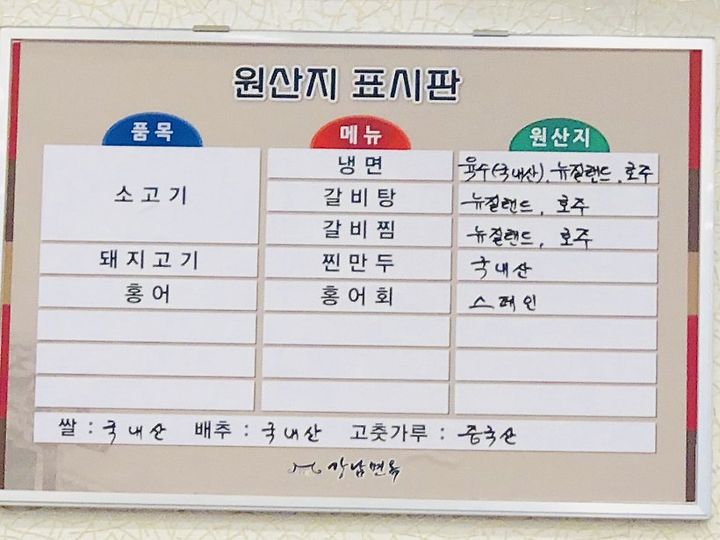 원산지 표시판
품목 메뉴 원산지
소고기 냉면 육수(국내산), 뉴질랜드, 호주
갈비탕 뉴질랜드, 호주
갈비찜 뉴질랜드, 호주
돼지고기 찐만두 국내산
홍어 홍어회 스페인
쌀 : 국내산 배추 : 국내산 고춧가루 : 중국산
강남면옥